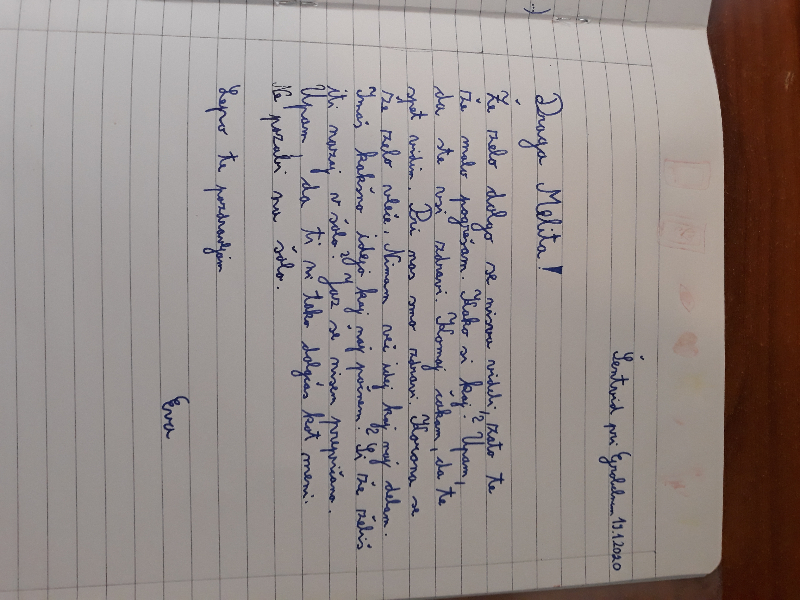 Šentvid pri Grobelnem 19.1.2020
Draga Melita!
Že zelo dolgo se nisva videli, zato te
že malo pogrešam. Kako si kaj? Upam,
da ste vsi zdravi. Komaj čakam, da te
spet vidim. Pri nas smo zdravi. Korona se
že zelo vleče. Nimam več idej kaj naj delam.
Imaš kakšno idejo kaj naj počnem? Si že želiš
iti nazaj v šolo? Jaz se nisem prepričana.
Upam da ti ni tako dolgčas kot meni.
Ne pozabi na šolo.
Lepo te pozdravljam
Eva